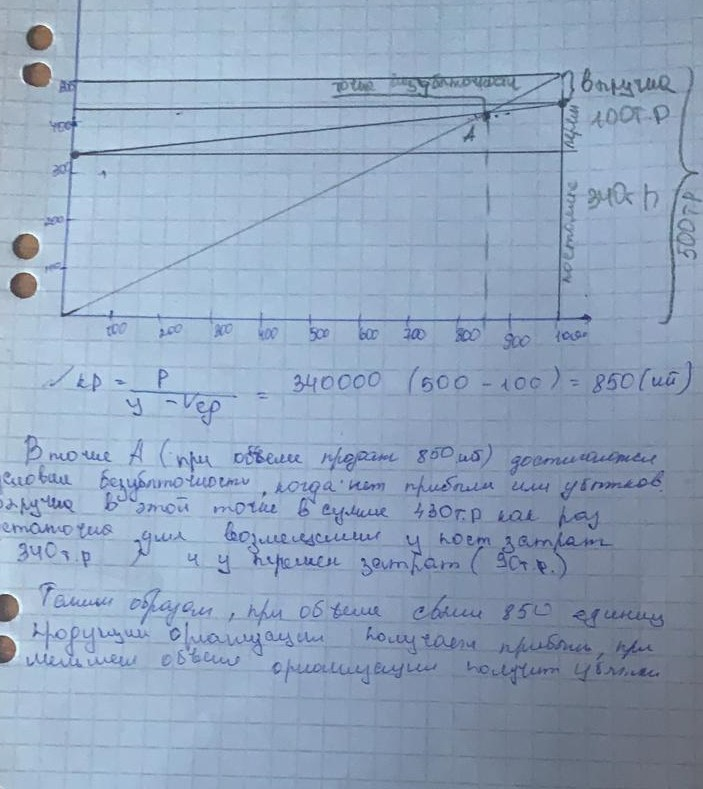 точка безубыточности
Выручка
500
400
А
100т.р
перем
300
340т р
постоянные
500т.р
200
100
100 200 300 400 500 600 700 800 900 1000
Vкр = P / (у - Vср) = 340000 (500 - 100) = 850 (шт)
В точке А (при объёме продаж 850 шт) достигаются
условия безубыточности, когда нет прибыли или убытков.
выручка в этой точке в сумме 430т.р как раз
статочна для возмещения у пост затрат
340т.р) и у перемен затрат (90т.р.)
Таким образом, при объёме свыше 850 единиц
продукции организации получает прибыль, при
меньшем объёме организации получит убытки